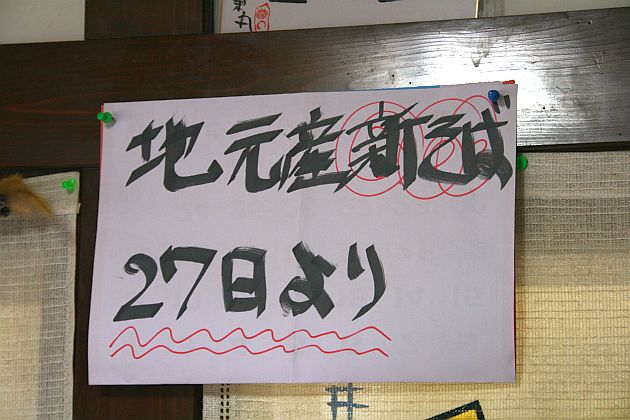 地元産新そば
27日より